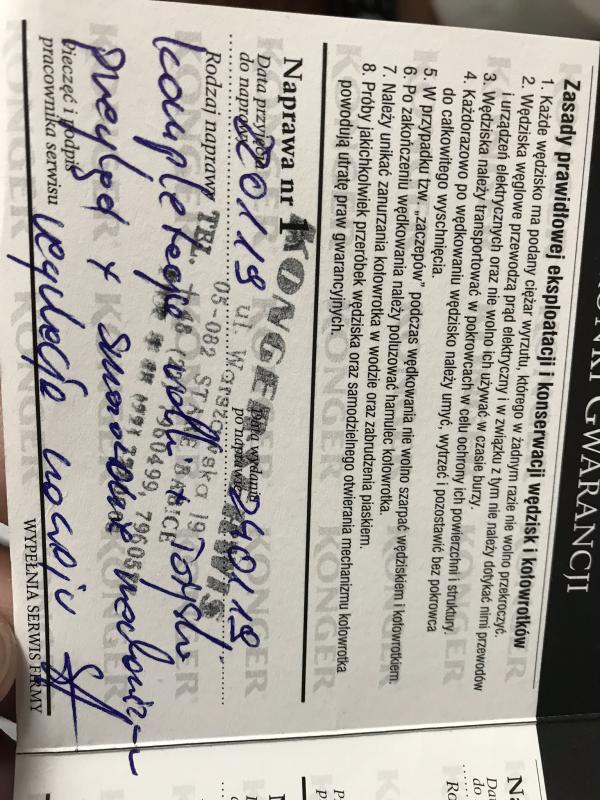 WARUNKI GWARANCJI
Zasady prawidłowej eksploatacji i konserwacji wędzisk i kołowrotków
1. Każde wędzisko ma podany ciężar wyrzutu, którego w żadnym razie nie wolno przekroczyć.
2. Wędziska węglowe przewodzą prąd elektryczny i w związku z tym nie należy dotykać nimi przewodów
i urządzeń elektrycznych oraz nie wolno ich używać w czasie burzy.
3. Wędziska należy transportować w pokrowcach w celu ochrony ich powierzchni i struktury.
4. Każdorazowo po wędkowaniu wędzisko należy umyć, wytrzeć i pozostawić bez pokrowca
do całkowitego wyschnięcia.
5. W przypadku tzw. „zaczepów” podczas wędkowania nie wolno szarpać wędziskiem i kołowrotkiem.
6. Po zakończeniu wędkowania należy poluzować hamulec kołowrotka.
7. Należy unikać zanurzania kołowrotka w wodzie oraz zabrudzenia piaskiem.
8. Próby jakichkolwiek przeróbek wędziska oraz samodzielnego otwierania mechanizmu kołowrotka
powodują utratę praw gwarancyjnych.
Naprawa nr 1
KONGER
Data przyjęcia
do naprawy
Data wydania
po naprawie
ul. Warszawska 19
05-082 STARE BABICE
Rodzaj naprawy
TEL.
przegląd + smarowanie
regulacja
Pieczęć i podpis
pracownika serwisu
WYPEŁNIA SERWIS FIRMY